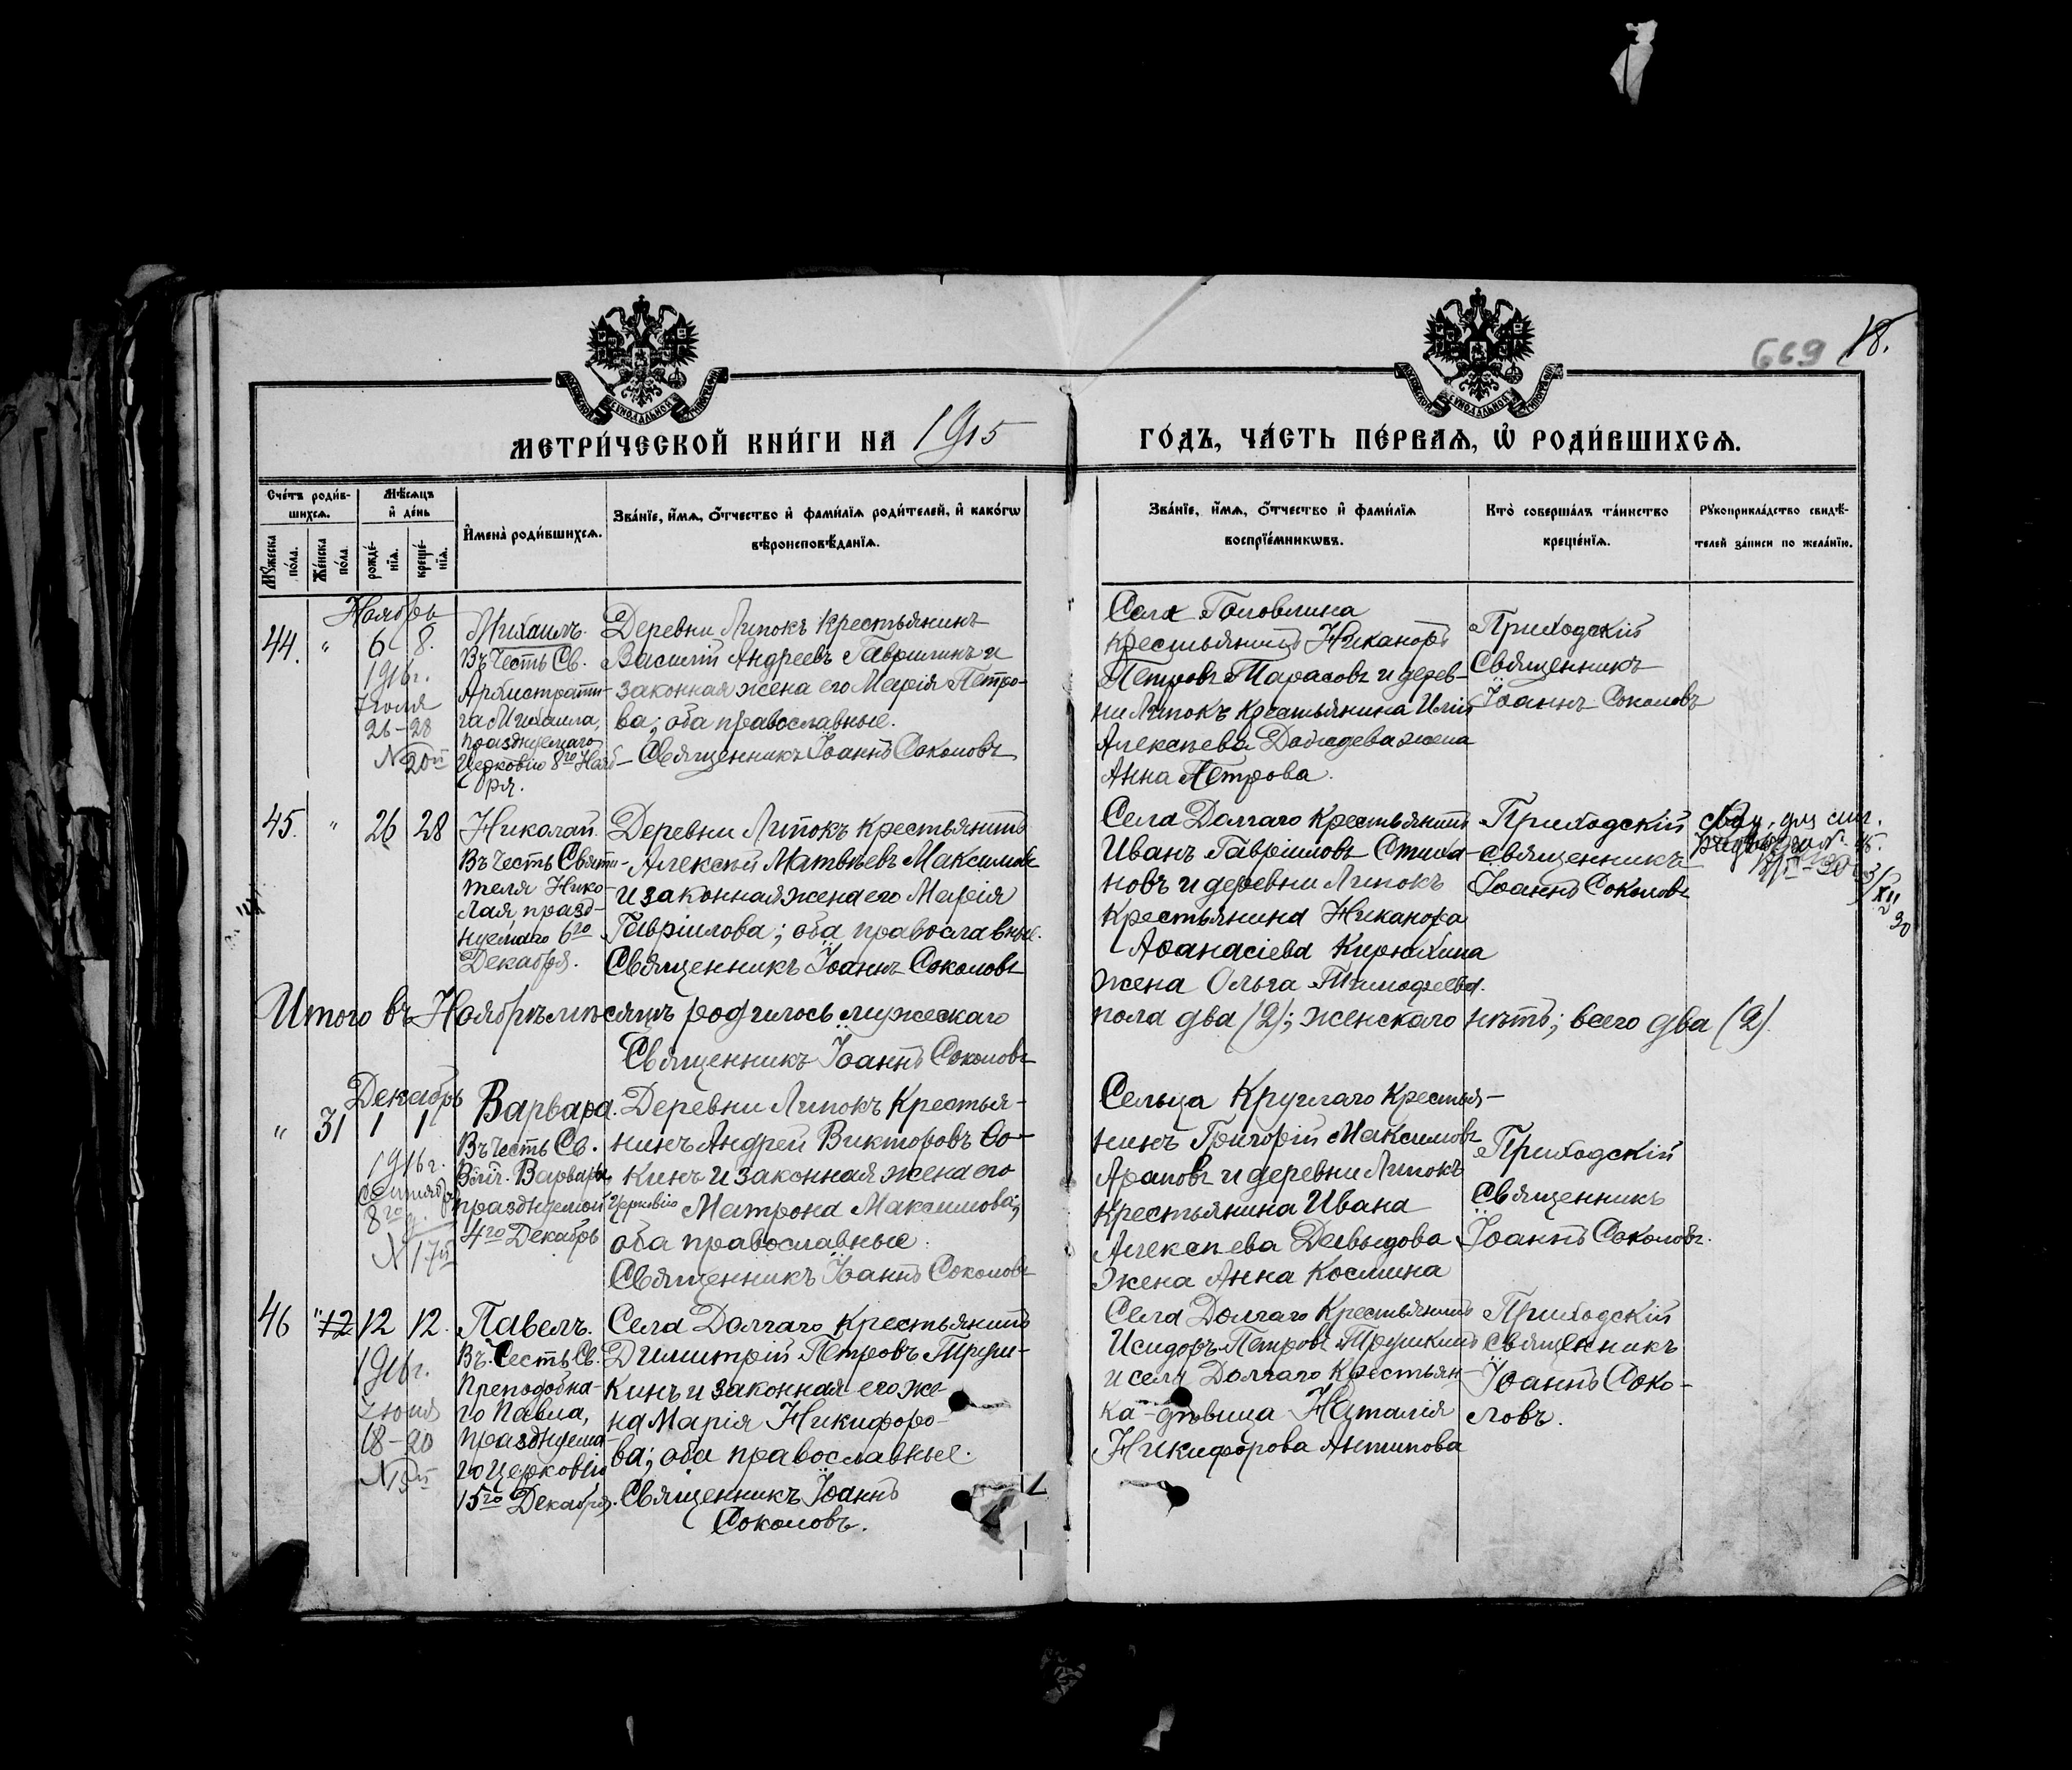 669 18.
МЕТРИ́ЧЕСКОЙ КНИ́ГИ НА 1915 ГО́ДЪ, ЧА́СТЬ ПЕ́РВАѦ, Ѡ҆ РОДИ́ВШИХСѦ.
Сче́тъ роди́в-
шихсѧ.
Мꙋ́жеска
по́ла.
Же́нска
по́ла.
Мѣ́сѧцъ
и҆ де́нь
рожде́-
нїѧ.
креще́-
нїѧ.
И҆мена̀ роди́вшихсѧ.
Зва́нїе, и҆́мѧ, ѻ҆́тчество и҆ фами́лїѧ роди́телей, и҆ како́гѡ
вѣроисповѣ́данїѧ.
Зва́нїе, и҆́мѧ, ѻ҆́тчество и҆ фами́лїѧ
воспрїе́мникѡвъ.
Кто̀ соверша́лъ та́инство
креще́нїѧ.
Рꙋкоприкла́дство свидѣ́-
телей за́писи по жела́нїю.
Ноябрь
44. " 6 8.
1916 г.
Іюля
26-28
N 20й
Михаилъ.
Въ честь Св.
Архистрати-
га Михаила,
празднуемаго
Церковію 8го Нояб-
бря.
Деревни Липокъ крестьянинъ
Василій Андреевъ Гавришинъ и
законная жена его Марія Петро-
ва; оба православные.
Священникъ Іоаннъ Соколовъ
Села Головлина
крестьянинъ Никаноръ
Петровъ Тарасовъ и дерев-
ни Липокъ крестьянина Иліи
Алексѣева жена
Анна Петрова.
Приходскій
Священникъ
Іоаннъ Соколовъ
45. " 26 28
Николай.
Въ честь Святи-
теля Нико-
лая, празд-
нуемаго 6го
Декабря.
Деревни Липокъ крестьянинъ
Алексѣй Матвѣевъ Максимовъ
и законная жена его Марія
Гавріилова; оба православные.
Священникъ Іоаннъ Соколовъ
Села Долгаго крестьянинъ
Иванъ Гавріиловъ
новъ и деревни Липокъ
крестьянина Никанора
Аѳанасіева Кирюхина
жена Ольга Тимофеева.
Приходскій
священникъ
Іоаннъ Соколовъ
Итого въ Ноябрѣ мѣсяцѣ родилось мужескаго пола два (2); женскаго нѣтъ; всего два (2).
Священникъ Іоаннъ Соколовъ
Декабрь
" 31 1 1
1916 г.
Сентября
8го
N 17й
Варвара.
Въ честь Св.
Влмч. Варвары,
празднуемой Церковію
4го Декабрь
Деревни Липокъ крестья-
нинъ Андрей Викторовъ Со-
кинъ и законная жена его
Матрона Максимова;
оба православные.
Священникъ Іоаннъ Соколовъ
Сельца Круглаго крестья-
нинъ Григорій Максимовъ
Араповъ и деревни Липокъ
крестьянина Ивана
Алексѣева Давыдова
жена Анна Космина
Приходскій
священникъ
Іоаннъ Соколовъ.
46 " 12 12 12.
1916 г.
Іюня
18-20
N 15й
Павелъ.
Въ честь Св.
Преподобна-
го Павла,
празднуема-
го Церковію
15го Декабря.
Села Долгаго крестьянинъ
Димитрій Петровъ Труш-
кинъ и законная его же-
на Марія Никифоро-
ва; оба православные.
Священникъ Іоаннъ
Соколовъ.
Села Долгаго крестьянинъ
Исидоръ Петровъ Трушкинъ
и села Долгаго крестьян-
ка-дѣвица Наталія
Никифорова Антипова
Приходскій
священникъ
Іоаннъ Соко-
ловъ.